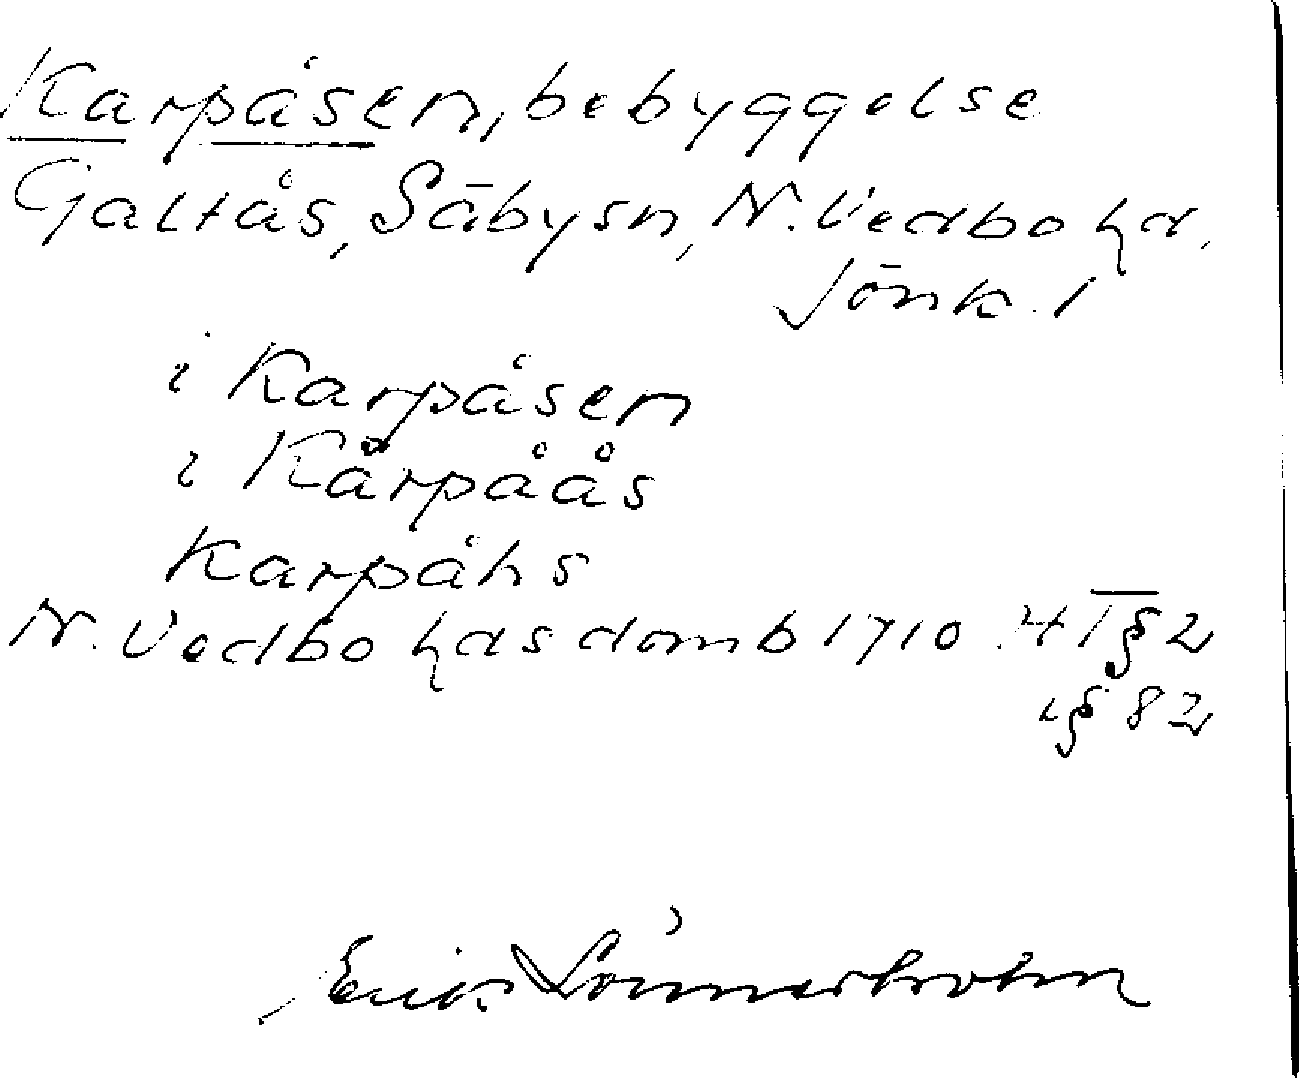 Karpåsen, bebyggelse
Galtås, Säbysn, N. Vedbo hd.
Jönk. l
i Karpåsen
i Kårpåås
Karpåhs
N. Vedbo hds domb 1710 4 T § 2
i § 82
Erik Lönnerholm